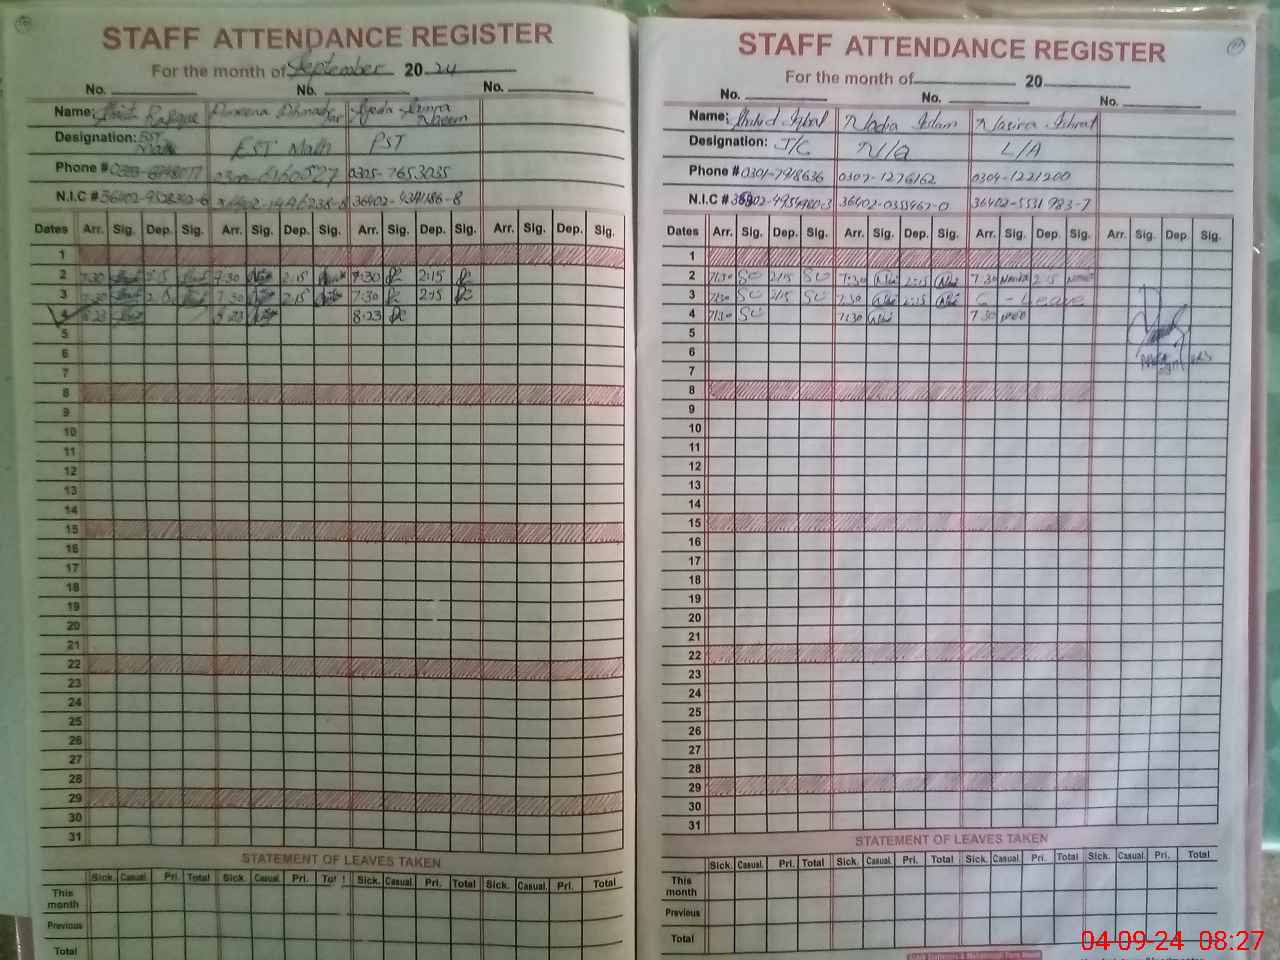 STAFF ATTENDANCE REGISTER
For the month of September 2024
No. No. No.
Name: Rafique Ahmad Syeda Naeem
Designation: EST Math PST
Phone # 0305-7653035
N.I.C # 36402-9528302-6 36402-4341186-8
Dates Arr. Sig. Dep. Sig. Arr. Sig. Dep. Sig. Arr. Sig. Dep. Sig. Arr. Sig. Dep. Sig.
1
2 7:30 2:15 7:30 2:15 7:30 2:15
3 7:30 2:15 7:30 2:15 7:30 2:15
4 8:23 8:23 8:23
5
6
7
8
9
10
11
12
13
14
15
16
17
18
19
20
21
22
23
24
25
26
27
28
29
30
31
STATEMENT OF LEAVES TAKEN
Sick. Casual. Pri. Total Sick. Casual. Pri. Sick. Casual. Pri. Total Sick. Casual. Pri. Total
This month
Previous
Total
STAFF ATTENDANCE REGISTER
For the month of 20
No. No. No.
Name: Iqbal Nadia Islam Nasira Ishrat
Designation: J/C N/Q L/A
Phone # 0301-7918636 0307-1276162 0304-1221200
N.I.C # 36402-0355467-0 36402-5531983-7
Dates Arr. Sig. Dep. Sig. Arr. Sig. Dep. Sig. Arr. Sig. Dep. Sig. Arr. Sig. Dep. Sig.
1
2 7:30 SU 2:15 SU 7:30 2:15 7:30 2:15
3 7:30 SU 2:15 SU 7:30 2:15 C - Leave
4 7:30 SU 7:30 7:30
5
6
7
8
9
10
11
12
13
14
15
16
17
18
19
20
21
22
23
24
25
26
27
28
29
30
31
STATEMENT OF LEAVES TAKEN
Sick. Casual. Pri. Total Sick. Casual. Pri. Total Sick. Casual. Pri. Total Sick. Casual. Pri. Total
This month
Previous
Total
04-09-24 08:27